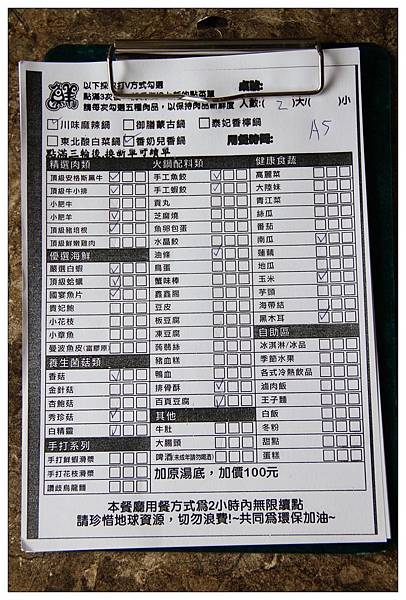 以下採
打V方式勾選
桌號:
點滿3次後
請每次勾選五種肉品,以保持肉品新鮮度
人數:( 2 )大/( )小
川味麻辣鍋 御膳蒙古鍋 泰妃香檸鍋
A5
東北酸白菜鍋 香奶兒香鍋 用餐時間:
點滿三輪後,換新單可續單
精選肉類
頂級安格斯黑牛
頂級牛小排
小肥牛
小肥羊
頂級豬培根
頂級鮮嫩雞肉
優選海鮮
嚴選白蝦
頂級蛤蠣
國宴魚片
貴妃鮑
小花枝
小章魚
曼波魚皮(富膠原)
養生菌菇類
香菇
金針菇
杏鮑菇
秀珍菇
白精靈
手打系列
手打鮮蝦滑漿
手打花枝滑漿
讚歧烏龍麵
火鍋配料類
手工魚餃
手工蝦餃
貢丸
芝麻燒
魚卵包蛋
水晶餃
油條
鳥蛋
蟹味棒
鑫鑫腸
豆皮
板豆腐
凍豆腐
蒟蒻絲
豬血糕
鴨血
排骨酥
百頁豆腐
其他
牛肚
大腸頭
啤酒(未成年請勿喝酒)
健康食蔬
高麗菜
大陸妹
青江菜
絲瓜
番茄
南瓜
蓮藕
地瓜
玉米
芋頭
海帶結
黑木耳
自助區
冰淇淋/冰品
季節水果
各式冷熱飲品
滷肉飯
王子麵
白飯
冬粉
甜點
蛋糕
加原湯底,加價100元
本餐廳用餐方式為2小時內無限續點
請珍惜地球資源,切勿浪費!~共同為環保加油~